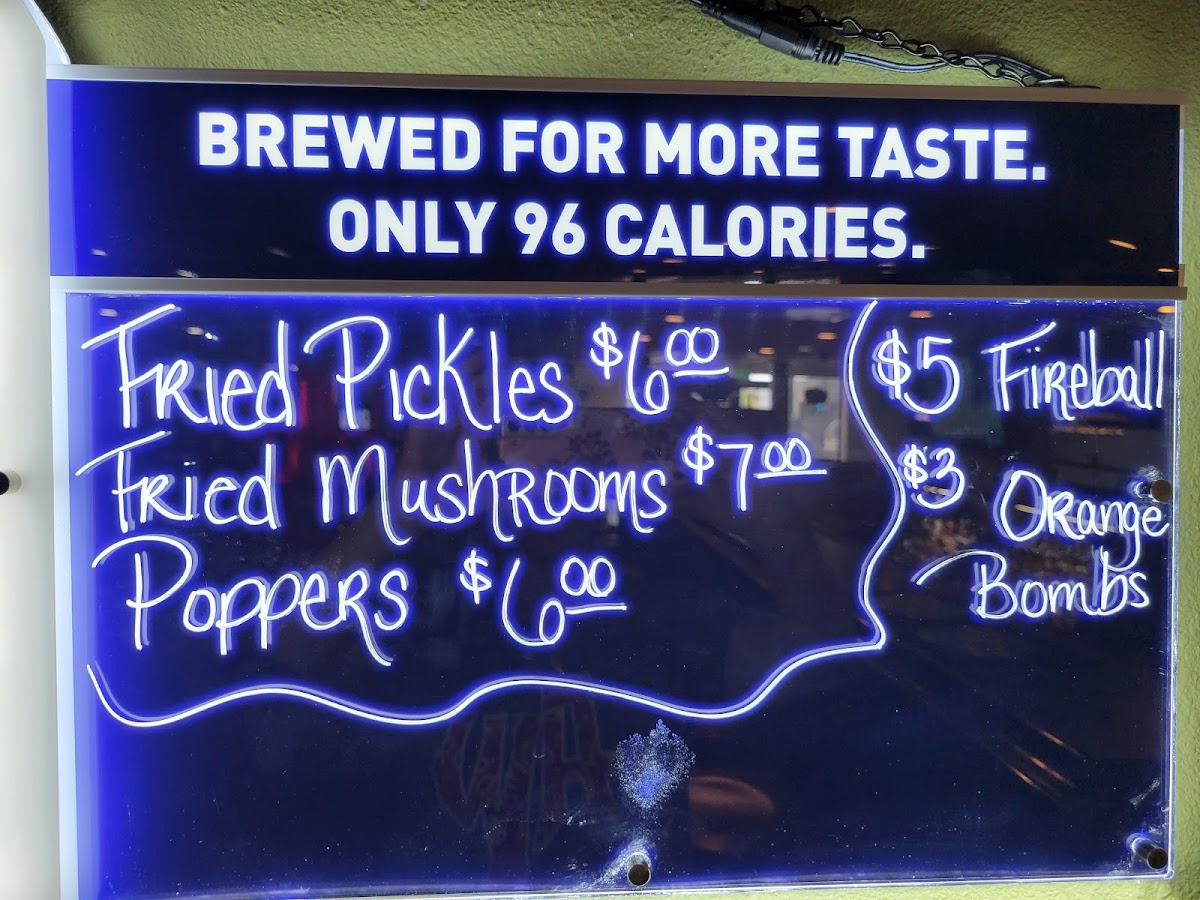 BREWED FOR MORE TASTE.
ONLY 96 CALORIES.
Fried Pickles $6.00
Fried Mushrooms $7.00
Poppers $6.00
$5 Fireball
$3 Orange
Bombs